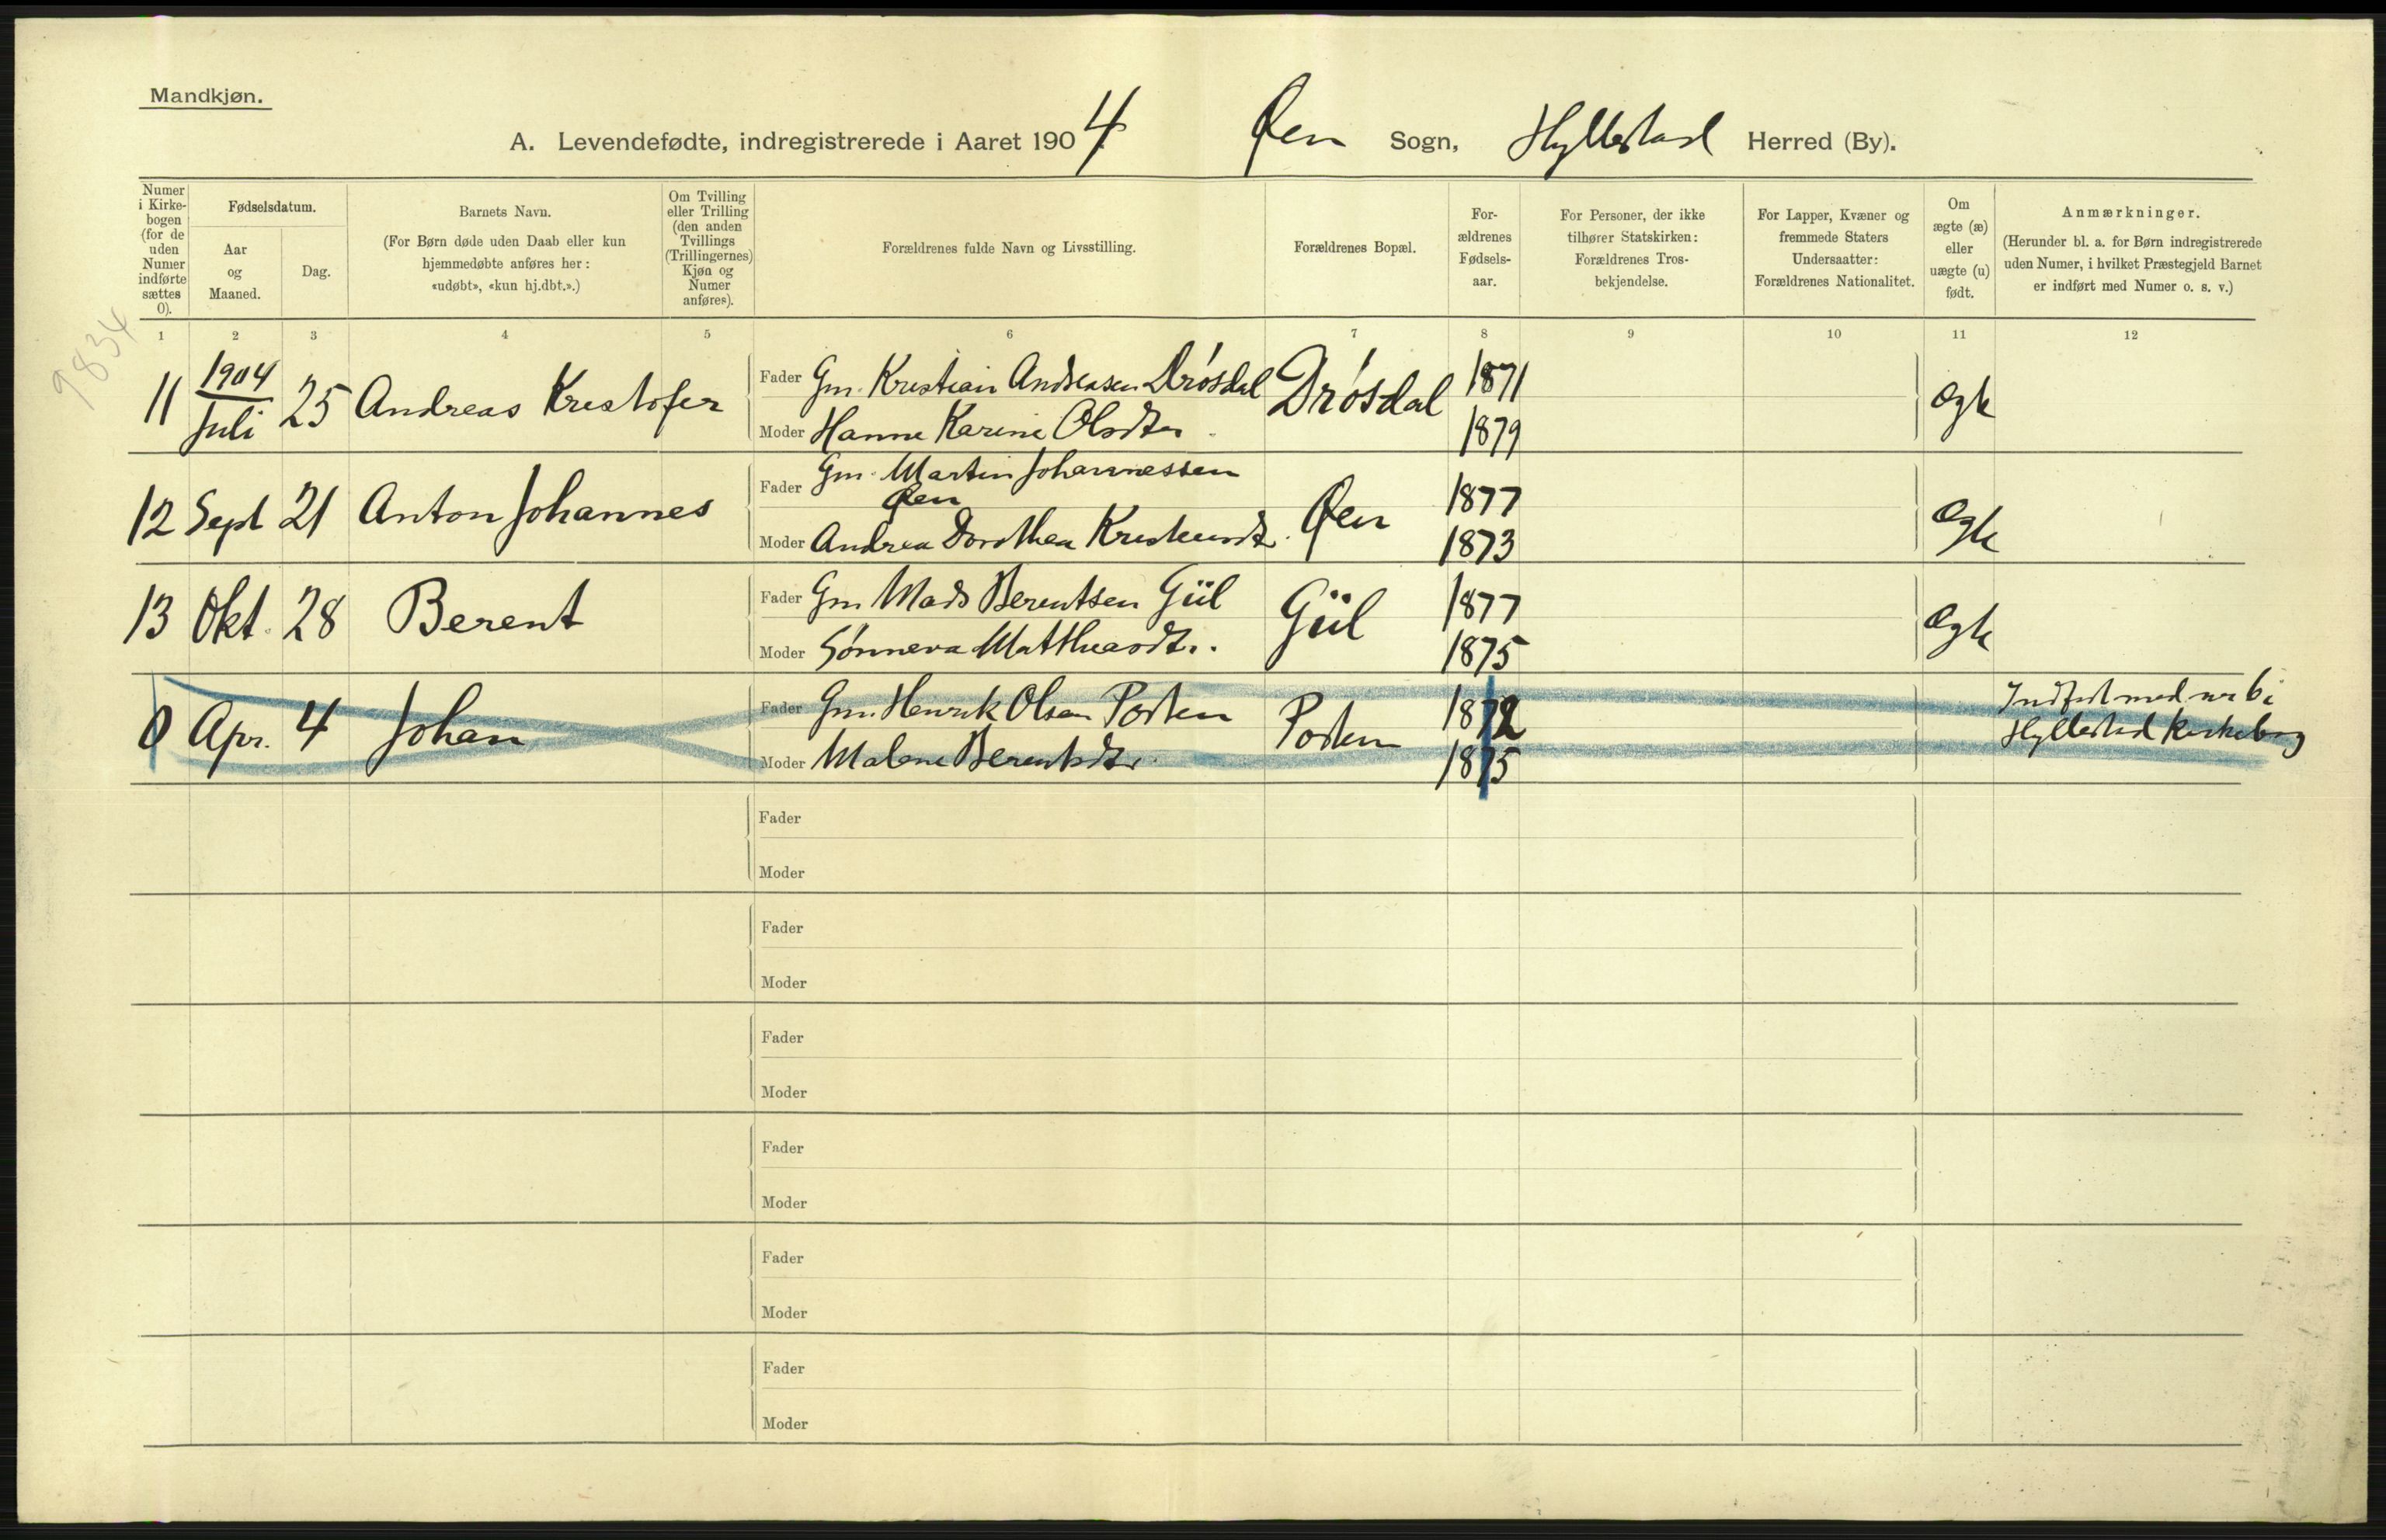 Mandkjøn.
A. Levendefødte, indregistrerede i Aaret 1904 Øen Sogn, Hyllestad Herred (By).
Numer i Kirke-
bogen
(for de
uden
Numer
indførte
sættes
0).
Fødselsdatum.
Aar
og
Maaned.
Dag.
Barnets Navn.
(For Børn døde uden Daab eller kun
hjemmedøbte anføres her:
«udøbt», «kun hj.dbt.».)
Om Tvilling
eller Trilling
(den anden
Tvillings
(Trillingernes)
Kjøn og
Numer
anføres).
Forældrenes fulde Navn og Livsstilling.
Forældrenes Bopæl.
For-
ældrenes
Fødsels-
aar.
For Personer, der ikke
tilhører Statskirken:
Forældrenes Tros-
bekjendelse.
For Lapper, Kvæner og
fremmede Staters
Undersaatter:
Forældrenes Nationalitet.
Om
ægte (æ)
eller
uægte (u)
født.
Anmærkninger.
(Herunder bl. a. for Børn indregistrerede
uden Numer, i hvilket Præstegjeld Barnet
er indført med Numer o. s. v.)
1 2 3 4 5 6 7 8 9 10 11 12
9834
11 1904 Juli 25 Andreas Kristofer
Fader Gm. Kristian Andreasen Drøsdal Drøsdal 1871
Moder Hanne Karine Olsdtr. 1879
Ægte
12 Sept 21 Anton Johannes
Fader Gm. Martin Johannessen
Øen Øen 1877
Moder Andrea Dorothea Kristensdt. 1873
Ægte
13 Okt. 28 Berent
Fader Gm Mads Berentsen Giil Giil 1877
Moder Sønneva Matthiasdtr. 1875
Ægte
0 Apr. 4 Johan
Fader Gm. Henrik Olsen Porten Porten 1872
Moder Malene Berentsdtr. 1875
Indført med nr 6 i
Hyllestad Kirkebog
Fader
Moder
Fader
Moder
Fader
Moder
Fader
Moder
Fader
Moder
Fader
Moder